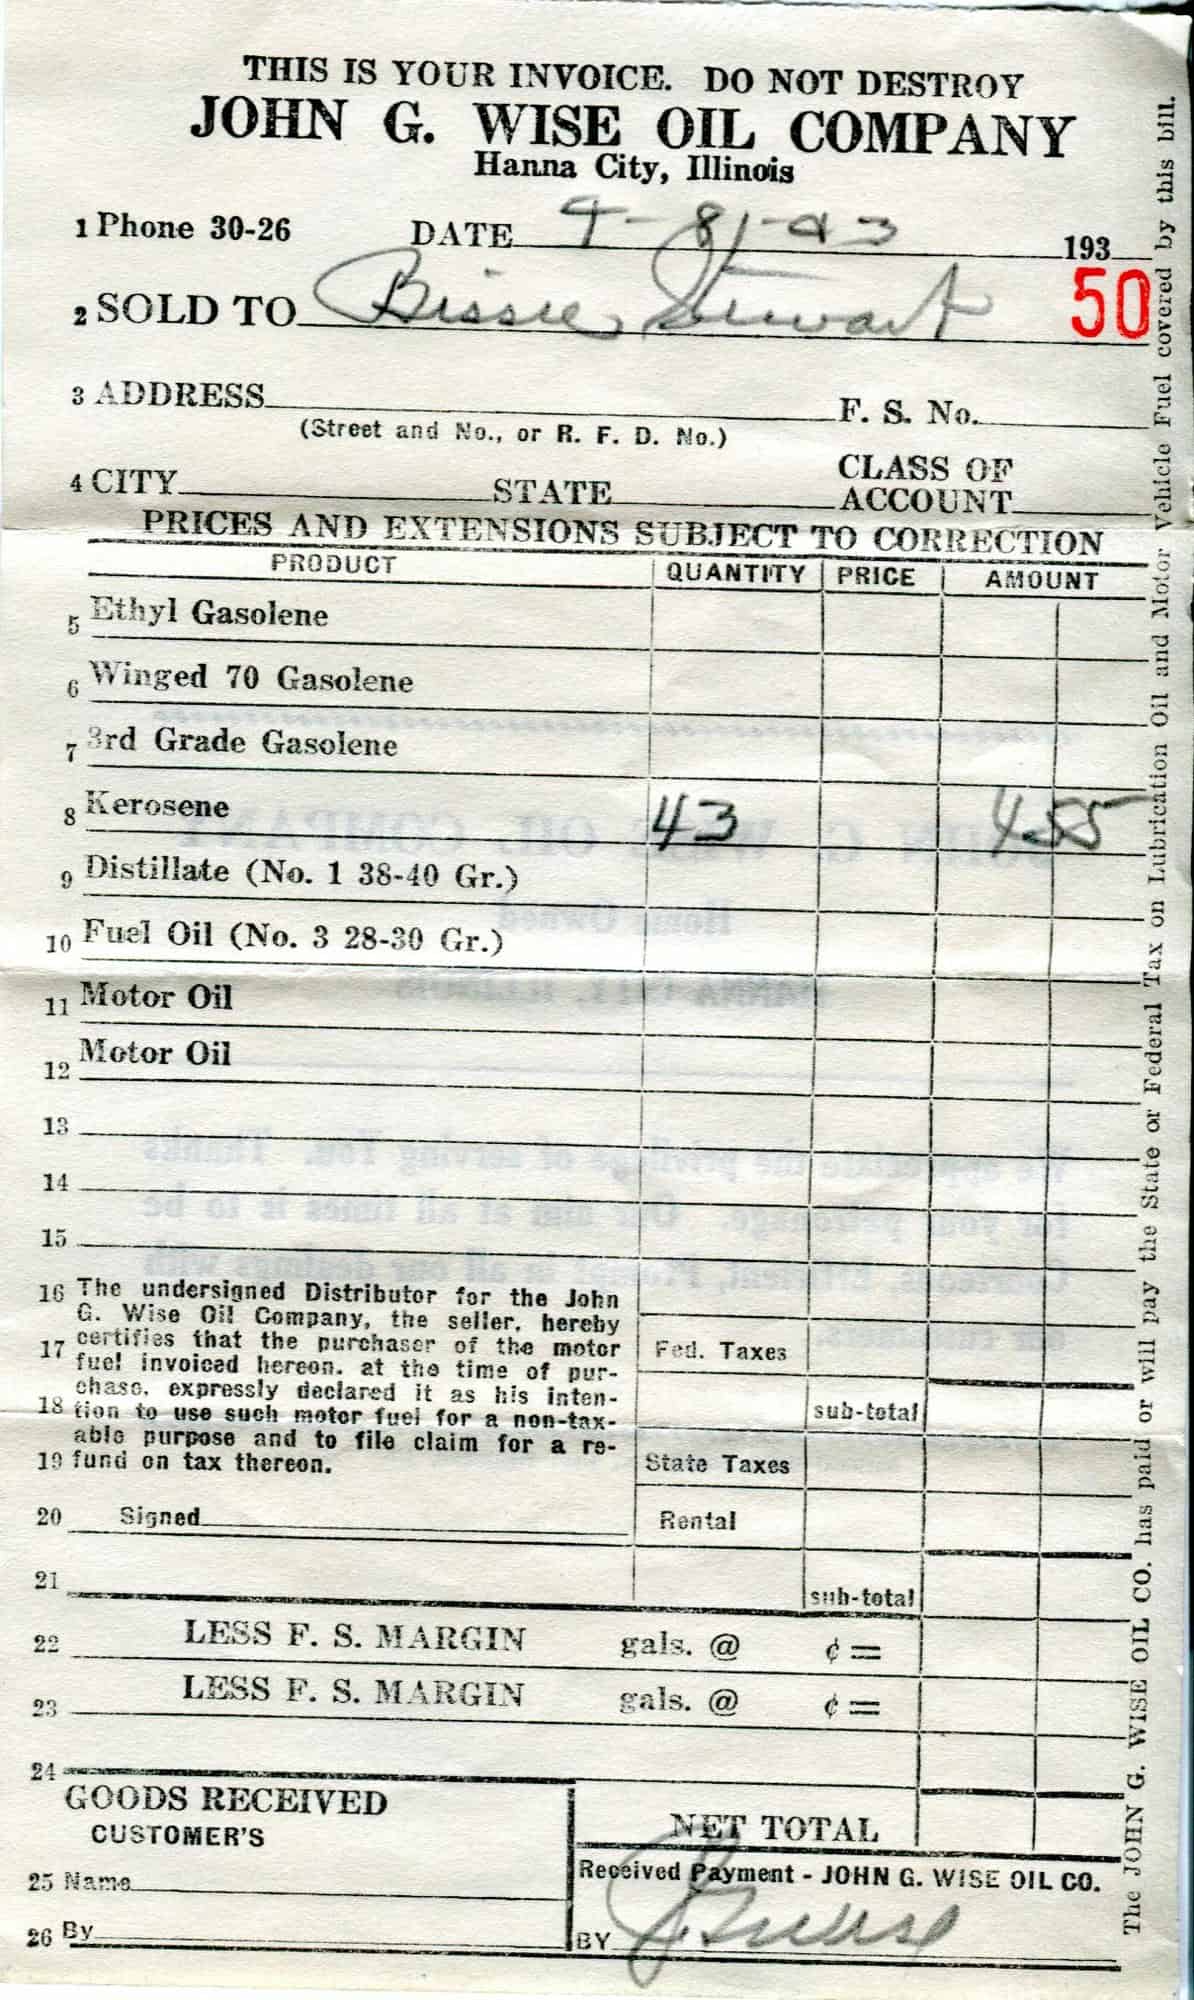 THIS IS YOUR INVOICE. DO NOT DESTROY
JOHN G. WISE OIL COMPANY
Hanna City, Illinois
1 Phone 30-26 DATE 193
2 SOLD TO Bissie Stewart 50
3 ADDRESS F. S. No.
(Street and No., or R. F. D. No.)
4 CITY STATE CLASS OF ACCOUNT
PRICES AND EXTENSIONS SUBJECT TO CORRECTION
PRODUCT QUANTITY PRICE AMOUNT
5 Ethyl Gasolene
6 Winged 70 Gasolene
7 3rd Grade Gasolene
8 Kerosene 43 455
9 Distillate (No. 1 38-40 Gr.)
10 Fuel Oil (No. 3 28-30 Gr.)
11 Motor Oil
12 Motor Oil
13
14
15
16 The undersigned Distributor for the John
G. Wise Oil Company, the seller, hereby
17 certifies that the purchaser of the motor
fuel invoiced hereon, at the time of pur-
chase, expressly declared it as his inten-
18 tion to use such motor fuel for a non-tax-
able purpose and to file claim for a re-
19 fund on tax thereon.
Fed. Taxes
sub-total
State Taxes
20 Signed Rental
21 sub-total
22 LESS F. S. MARGIN gals. @ ¢ =
23 LESS F. S. MARGIN gals. @ ¢ =
24
GOODS RECEIVED
CUSTOMER'S
25 Name
26 By
NET TOTAL
Received Payment - JOHN G. WISE OIL CO.
BY
The JOHN G. WISE OIL CO. has paid or will pay the State or Federal Tax on Lubrication Oil and Motor Vehicle Fuel covered by this bill.